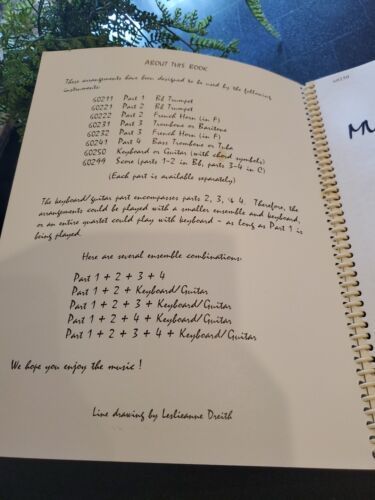 ABOUT THIS BOOK
These arrangements have been designed to be used by the following
instruments:
60211 Part 1 Bb Trumpet
60221 Part 2 Bb Trumpet
60222 Part 2 French Horn (in F)
60231 Part 3 Trombone or Baritone
60232 Part 3 French Horn (in F)
60241 Part 4 Bass Trombone or Tuba
60250 Keyboard or Guitar (with chord symbols)
60299 Score (parts 1-2 in Bb, parts 3-4 in C)
(Each part is available separately)
The keyboard/guitar part encompasses parts 2, 3, & 4. Therefore, the
arrangements could be played with a smaller ensemble and keyboard,
or an entire quartet could play with keyboard - as long as Part 1 is
being played.
Here are several ensemble combinations:
Part 1 + 2 + 3 + 4
Part 1 + 2 + Keyboard/Guitar
Part 1 + 2 + 3 + Keyboard/Guitar
Part 1 + 2 + 4 + Keyboard/Guitar
Part 1 + 2 + 3 + 4 + Keyboard/Guitar
We hope you enjoy the music!
Line drawing by Leslieanne Dreith
60250